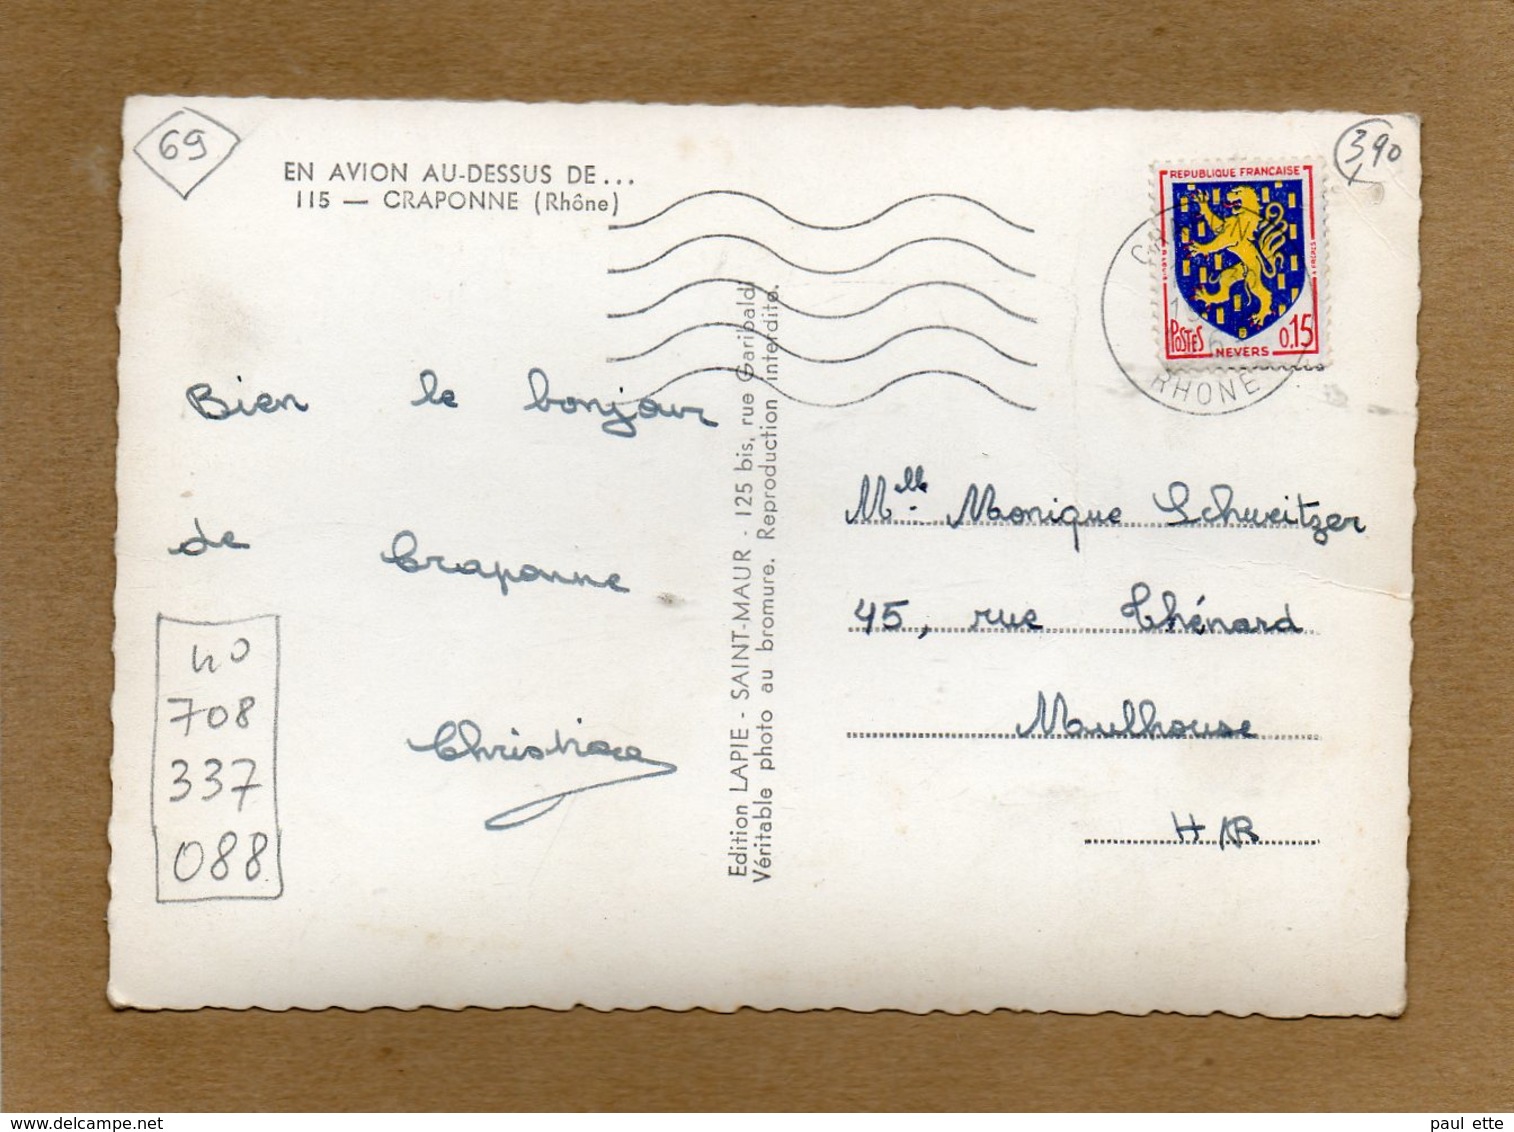 69
EN AVION AU-DESSUS DE...
115 — CRAPONNE (Rhône)
390
REPUBLIQUE FRANCAISE
POSTES 0,15
NEVERS
RHONE
Bien le bonjour
de Craponne
Christiane
40
708
337
088
Edition LAPIE - SAINT-MAUR - 125 bis, rue Garibaldi
Véritable photo au bromure. Reproduction interdite.
Mlle Monique Schweitzer
45, rue Thénard
Maulhouse
H/R
paul ette